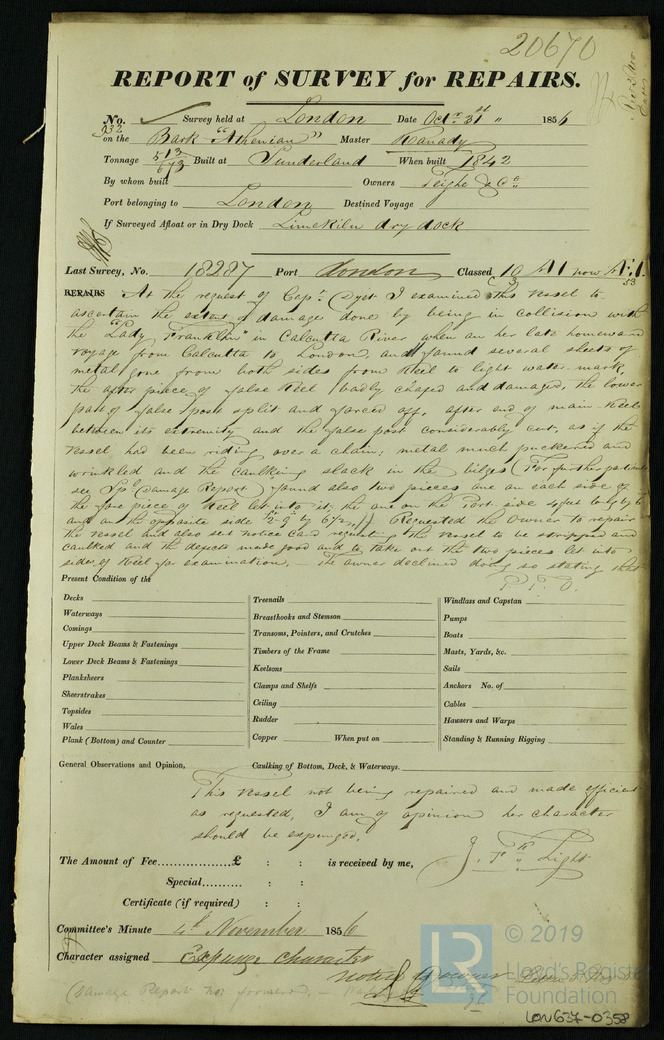 20670
REPORT of SURVEY for REPAIRS.
No. Survey held at London Date Octr. 31st 1856
932 on the Bark "Athenian" Master Kanady
Tonnage 513 673 Built at Sunderland When built 1842
By whom built Owners Teighe & Co
Port belonging to London Destined Voyage
If Surveyed Afloat or in Dry Dock Limekiln dry dock
Last Survey, No. 18287 Port London Classed 10 A1 now
53
REPAIRS At the request of Capt. Dyet I examined this vessel to
ascertain the extent of damages done by being in collision with
the "Lady Franklin" in Calcutta River when on her late homeward
voyage from Calcutta to London, and found several sheets of
metal gone from both sides from Keel to light water-mark,
the after piece of false Keel badly chafed and damaged, the lower
part of false post split and forced off, after end of main Keel
between its extremity and the false post considerably cut, as if the
vessel had been riding over a chain; metal much puckered and
wrinkled and the caulking slack in the bilges (For further particulars
see Spl Damage Report) found also two pieces one on each side of
the fore piece of Keel let into it; the one on the Port side long by
and on the opposite side by Requested the owner to repair
the vessel and also sent notice card requesting the vessel to be stripped and
caulked and the defects made good and to take out the two pieces let into
sides of Keel for examination, — The owner declined doing so stating that
P.T.O.
Present Condition of the
Decks
Waterways
Comings
Upper Deck Beams & Fastenings
Lower Deck Beams & Fastenings
Planksheers
Sheerstrakes
Topsides
Wales
Plank (Bottom) and Counter
Treenails
Breasthooks and Stemson
Transoms, Pointers, and Crutches
Timbers of the Frame
Keelsons
Clamps and Shelfs
Ceiling
Rudder
Copper When put on
Windlass and Capstan
Pumps
Boats
Masts, Yards, &c.
Sails
Anchors No. of
Cables
Hawsers and Warps
Standing & Running Rigging
General Observations and Opinion, Caulking of Bottom, Deck, & Waterways.
This vessel not being repaired and made efficient
as requested, I am of opinion her character
should be expunged.
The Amount of Fee £ : : is received by me, J. Light
Special : :
Certificate (if required) : :
Committee's Minute 4th November 1856
Character assigned Expunge Character
noted owner
(Damage Report not forwarded
© 2019
LR
Lloyd's Register
Foundation
LON637-0358